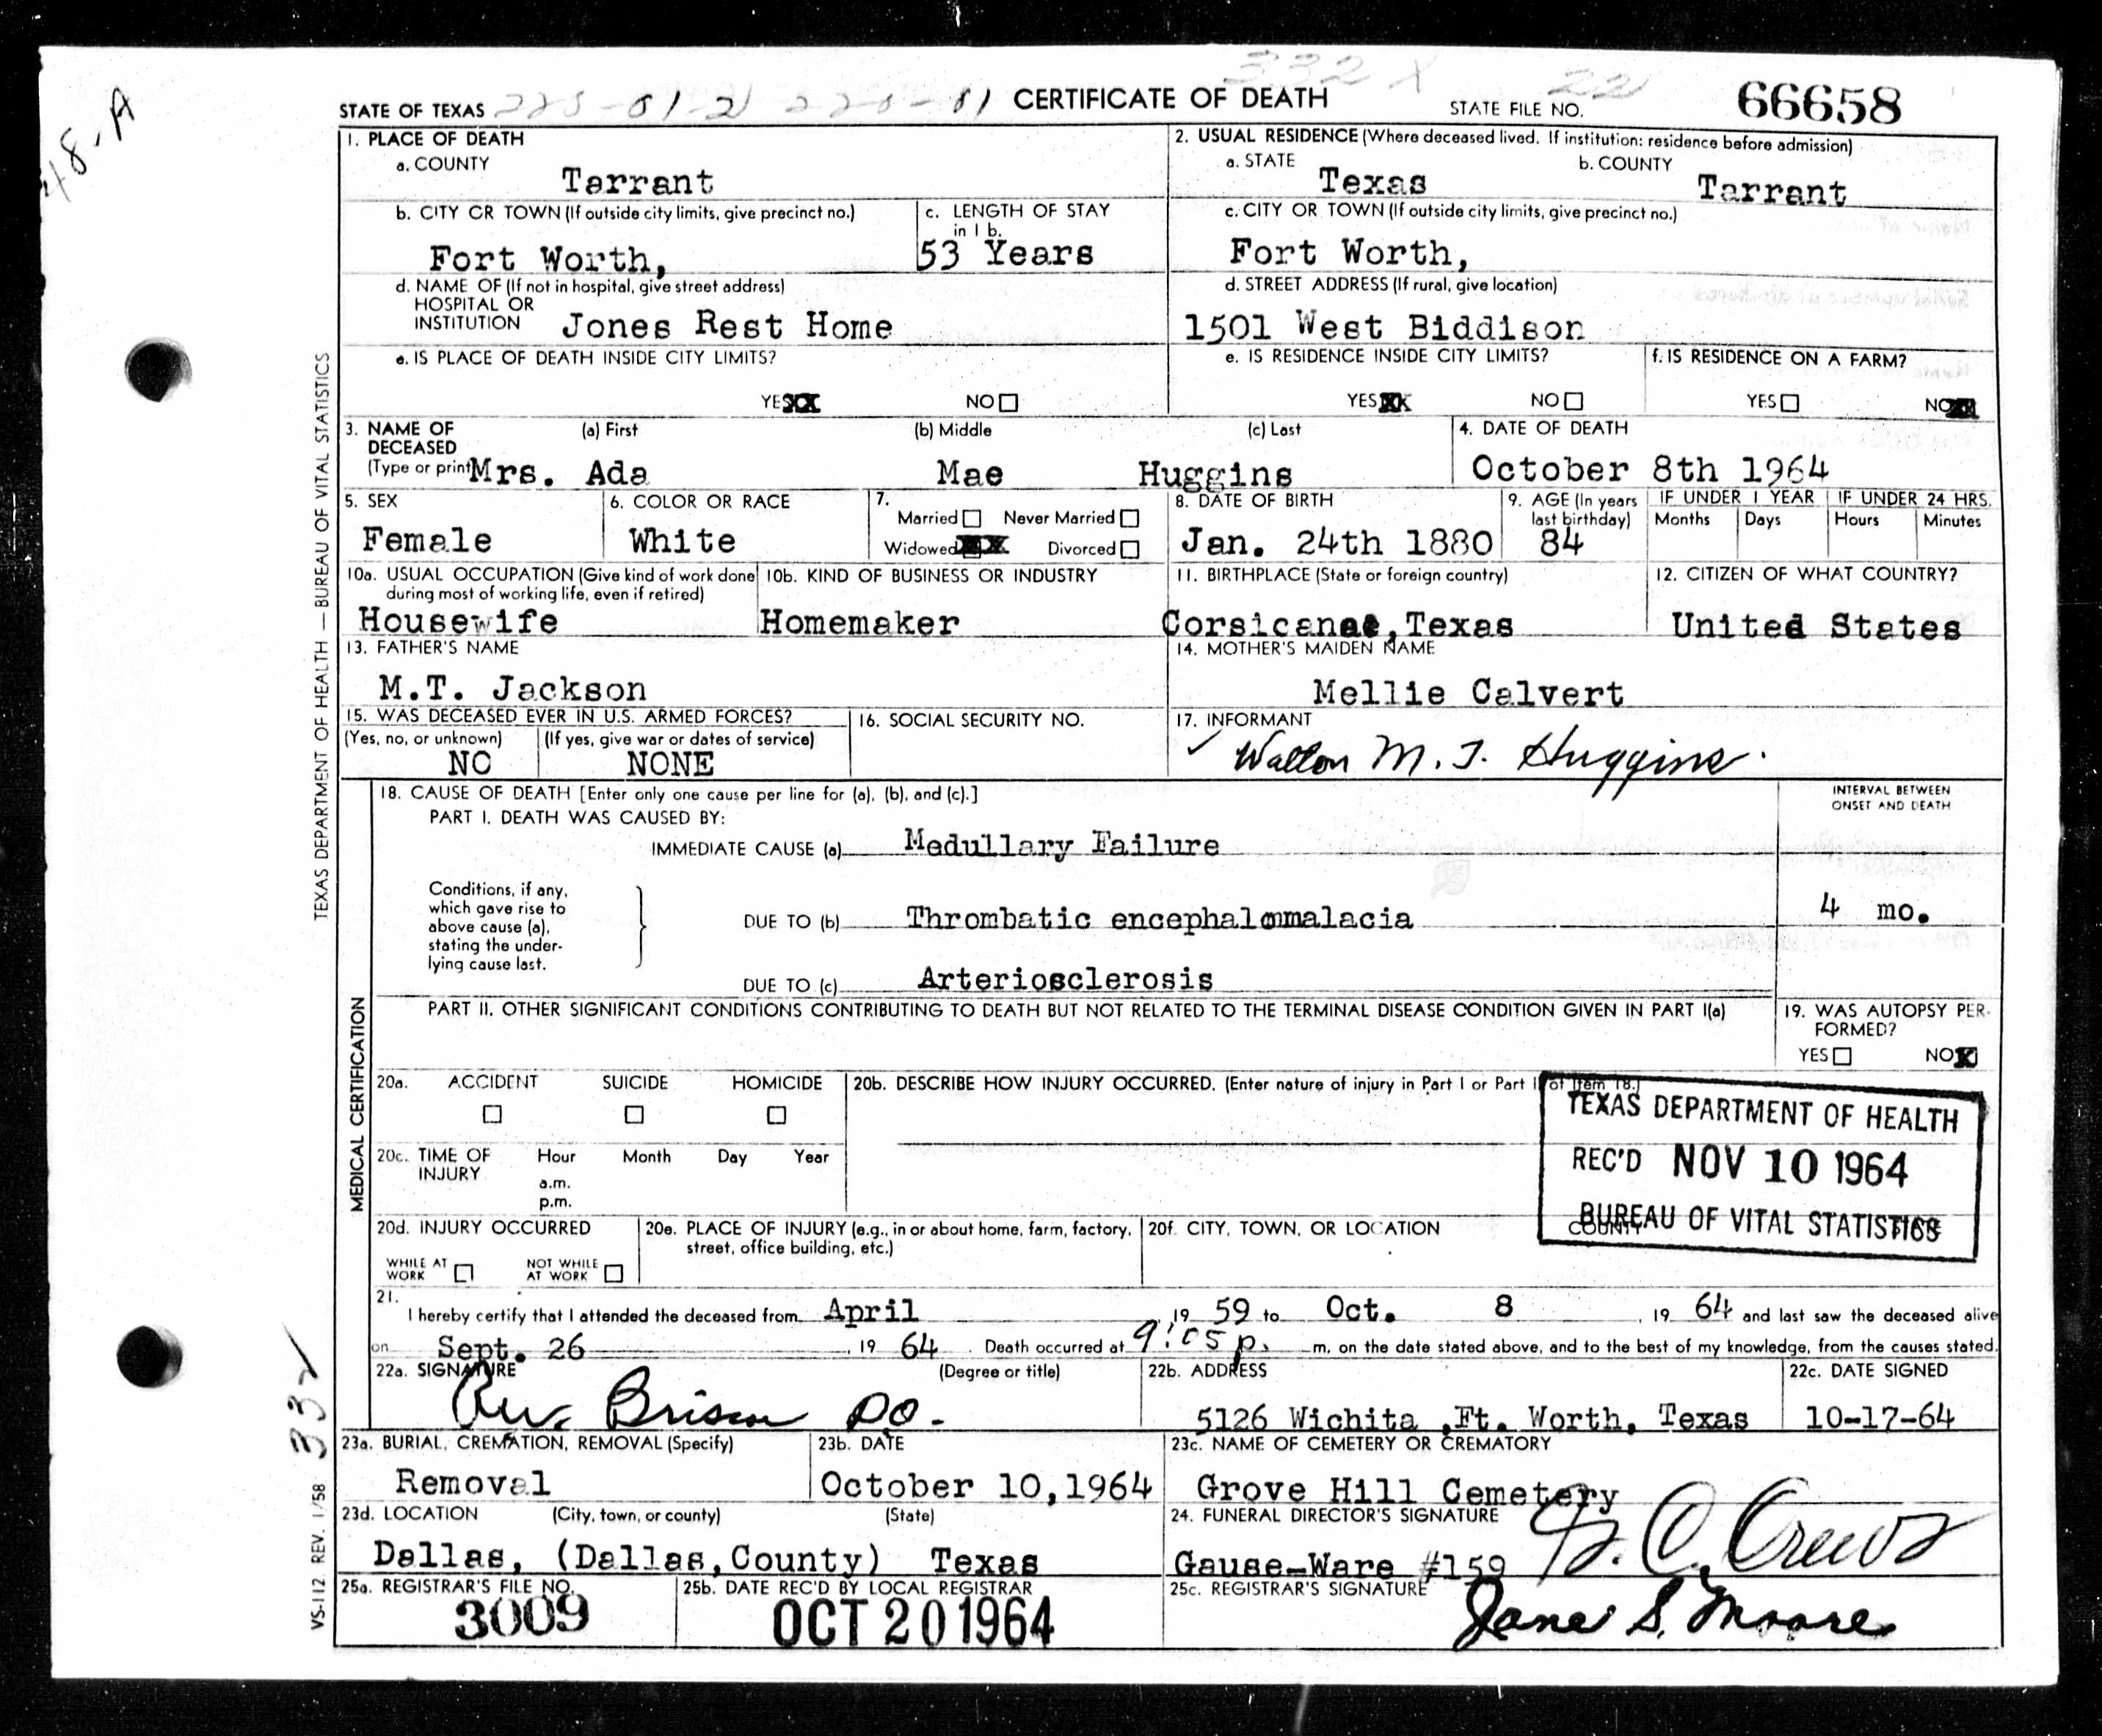 48-A
332 X 22
STATE OF TEXAS 225-81-2) 225-81 CERTIFICATE OF DEATH STATE FILE NO. 66658
1. PLACE OF DEATH
a. COUNTY
Tarrant
2. USUAL RESIDENCE (Where deceased lived. If institution: residence before admission)
a. STATE b. COUNTY
Texas Tarrant
b. CITY OR TOWN (If outside city limits, give precinct no.)
Fort Worth,
c. LENGTH OF STAY
in 1 b.
53 Years
c. CITY OR TOWN (If outside city limits, give precinct no.)
Fort Worth,
d. NAME OF (If not in hospital, give street address)
HOSPITAL OR
INSTITUTION Jones Rest Home
d. STREET ADDRESS (If rural, give location)
1501 West Biddison
e. IS PLACE OF DEATH INSIDE CITY LIMITS?
YES XX NO
e. IS RESIDENCE INSIDE CITY LIMITS?
YES XX NO
f. IS RESIDENCE ON A FARM?
YES NO XX
3. NAME OF (a) First (b) Middle (c) Last
DECEASED
(Type or print) Mrs. Ada Mae Huggins
4. DATE OF DEATH
October 8th 1964
5. SEX
Female
6. COLOR OR RACE
White
7.
Married Never Married
Widowed XX Divorced
8. DATE OF BIRTH
Jan. 24th 1880
9. AGE (In years
last birthday)
84
IF UNDER 1 YEAR IF UNDER 24 HRS.
Months Days Hours Minutes
10a. USUAL OCCUPATION (Give kind of work done
during most of working life, even if retired)
Housewife
10b. KIND OF BUSINESS OR INDUSTRY
Homemaker
11. BIRTHPLACE (State or foreign country)
Corsicana, Texas
12. CITIZEN OF WHAT COUNTRY?
United States
13. FATHER'S NAME
M.T. Jackson
14. MOTHER'S MAIDEN NAME
Mellie Calvert
15. WAS DECEASED EVER IN U.S. ARMED FORCES?
(Yes, no, or unknown) (If yes, give war or dates of service)
NO NONE
16. SOCIAL SECURITY NO.
17. INFORMANT
✓ Walton M. T. Huggins.
18. CAUSE OF DEATH [Enter only one cause per line for (a), (b), and (c).]
INTERVAL BETWEEN
ONSET AND DEATH
PART I. DEATH WAS CAUSED BY:
IMMEDIATE CAUSE (a) Medullary Failure
Conditions, if any,
which gave rise to
above cause (a),
stating the under-
lying cause last.
DUE TO (b) Thrombatic encephalommalacia 4 mo.
DUE TO (c) Arteriosclerosis
PART II. OTHER SIGNIFICANT CONDITIONS CONTRIBUTING TO DEATH BUT NOT RELATED TO THE TERMINAL DISEASE CONDITION GIVEN IN PART I(a)
19. WAS AUTOPSY PER-
FORMED?
YES NO X
20a. ACCIDENT SUICIDE HOMICIDE
20b. DESCRIBE HOW INJURY OCCURRED. (Enter nature of injury in Part I or Part II of Item 18.)
TEXAS DEPARTMENT OF HEALTH
REC'D NOV 10 1964
BUREAU OF VITAL STATISTICS
20c. TIME OF Hour Month Day Year
INJURY
a.m.
p.m.
20d. INJURY OCCURRED
WHILE AT
WORK
NOT WHILE
AT WORK
20e. PLACE OF INJURY (e.g., in or about home, farm, factory,
street, office building, etc.)
20f. CITY, TOWN, OR LOCATION COUNTY
21.
I hereby certify that I attended the deceased from April , 19 59 to Oct. 8 , 19 64 and last saw the deceased alive
on Sept. 26 , 19 64 . Death occurred at 9:05 p. m. on the date stated above, and to the best of my knowledge, from the causes stated.
22a. SIGNATURE (Degree or title)
Briscoe DO.
22b. ADDRESS
5126 Wichita ,Ft. Worth, Texas
22c. DATE SIGNED
10-17-64
23a. BURIAL, CREMATION, REMOVAL (Specify)
Removal
23b. DATE
October 10,1964
23c. NAME OF CEMETERY OR CREMATORY
Grove Hill Cemetery
23d. LOCATION (City, town, or county) (State)
Dallas, (Dallas,County) Texas
24. FUNERAL DIRECTOR'S SIGNATURE
Gause-Ware #159 C. Crews
25a. REGISTRAR'S FILE NO.
3009
25b. DATE REC'D BY LOCAL REGISTRAR
OCT 20 1964
25c. REGISTRAR'S SIGNATURE
Jane S. Moore
TEXAS DEPARTMENT OF HEALTH — BUREAU OF VITAL STATISTICS
MEDICAL CERTIFICATION
VS-112 REV. 1/58
332 ✓